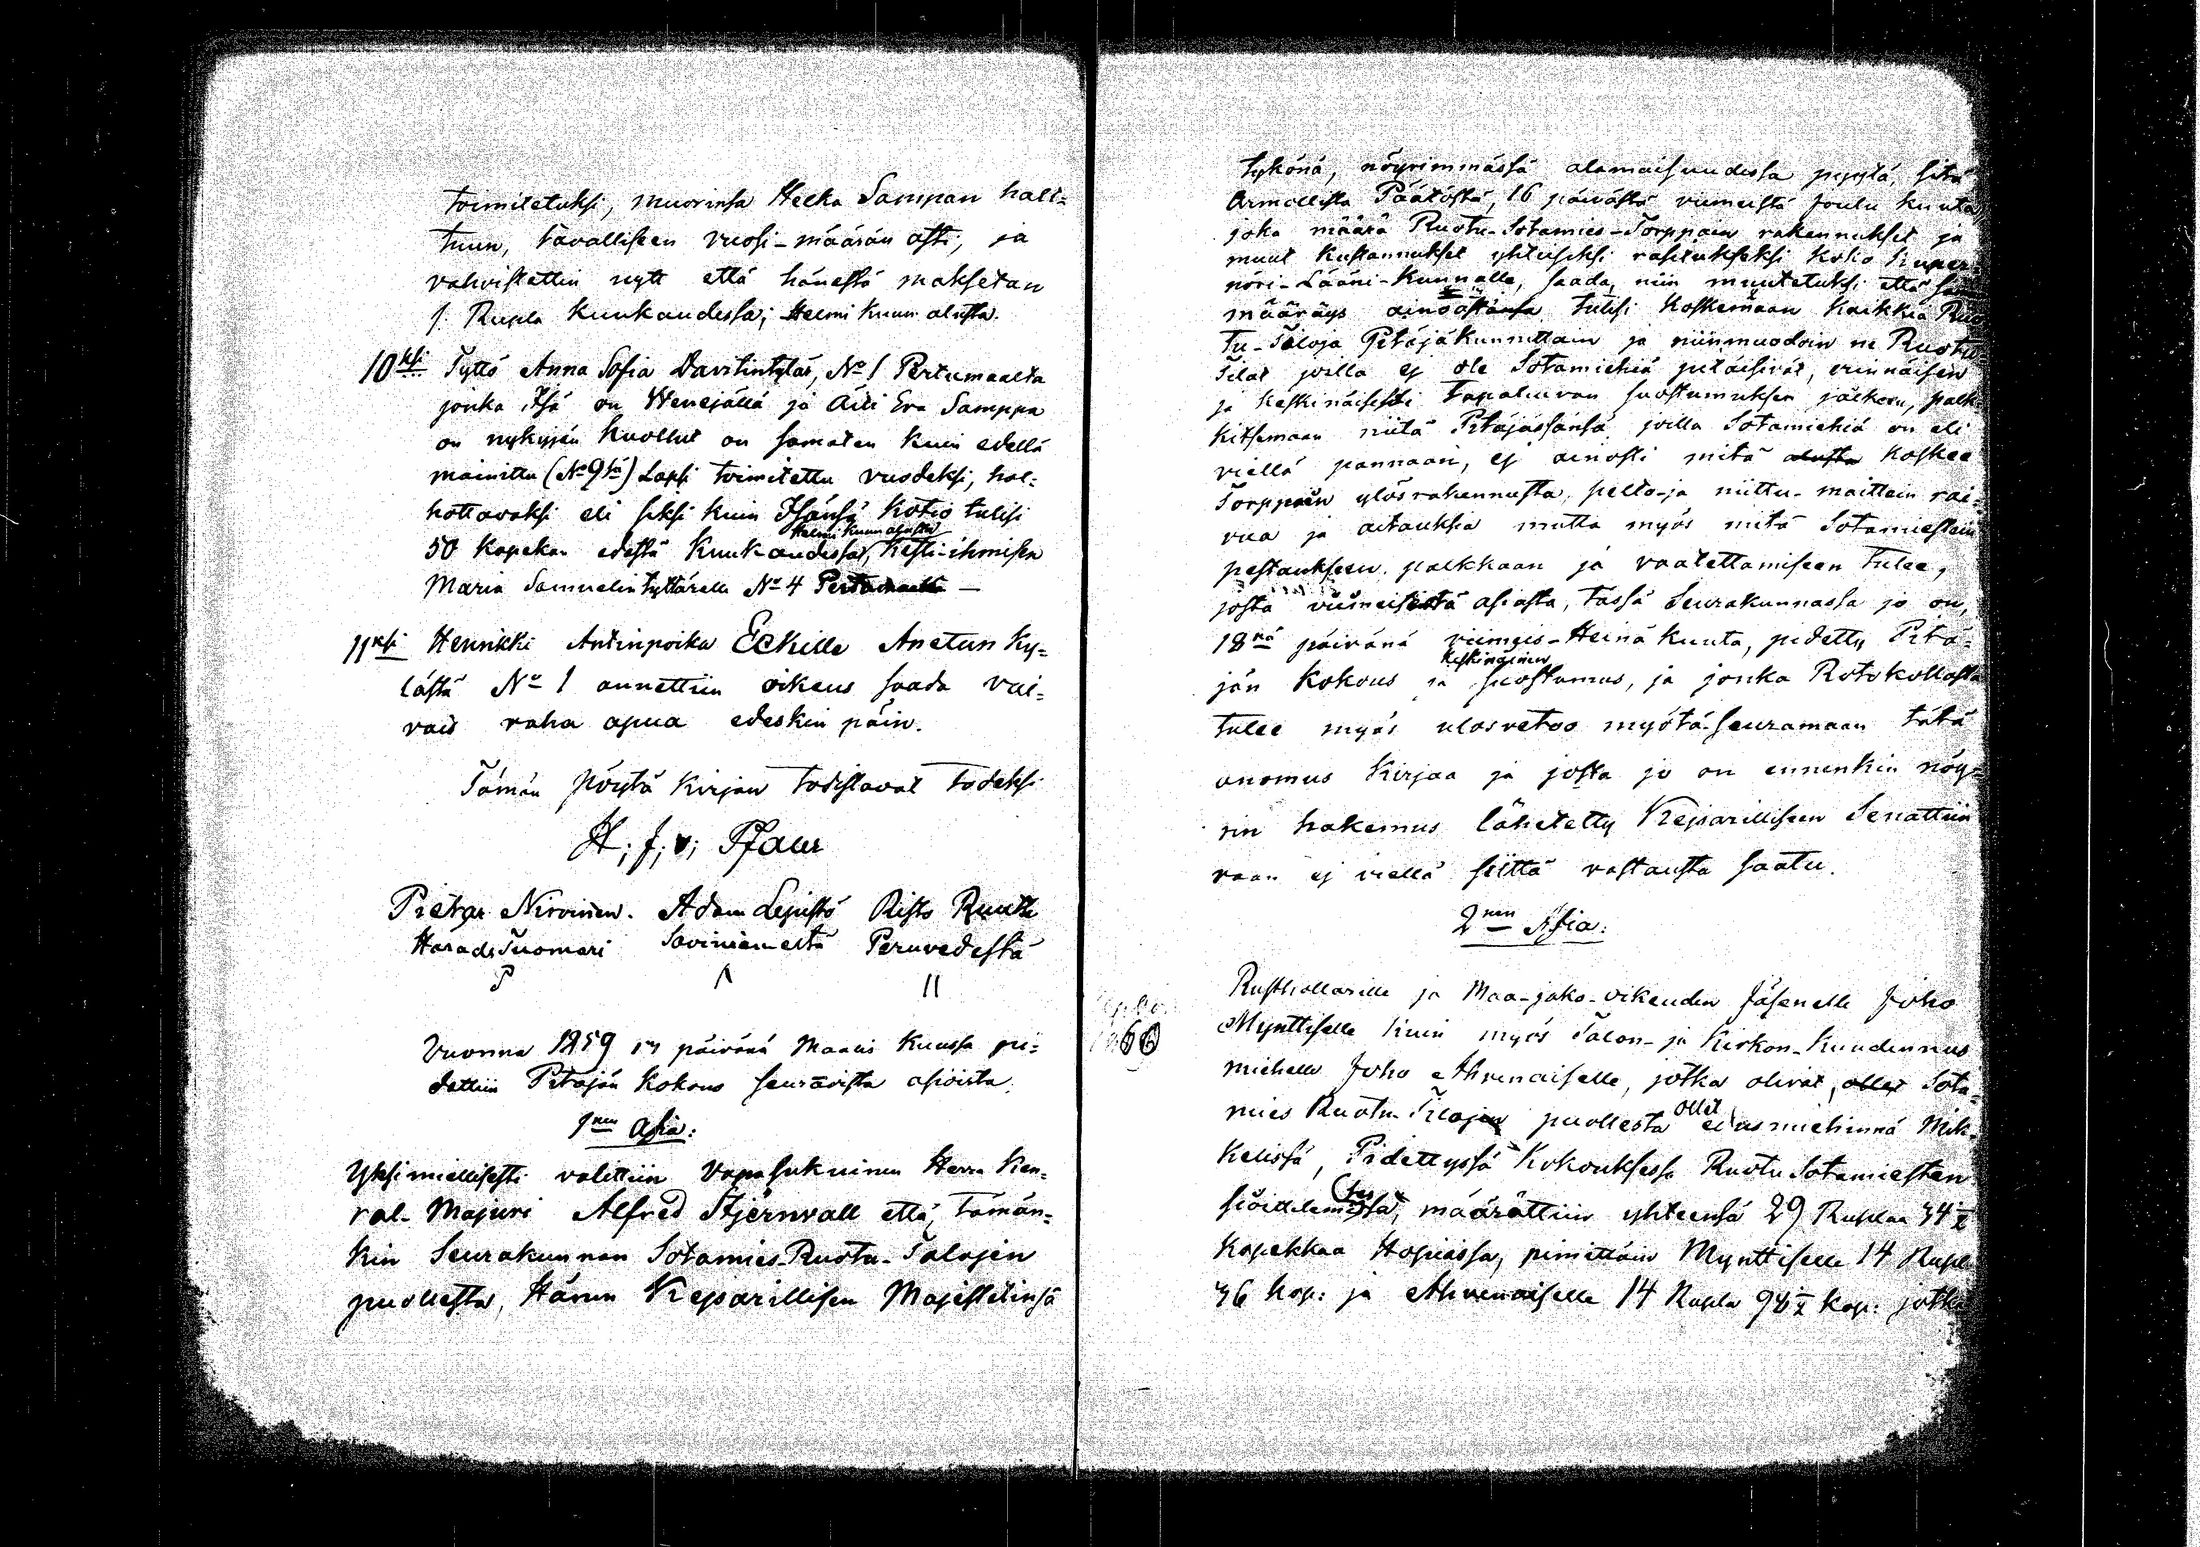 toimitetuksi, muorinsa Helka Sampan halt=
tuun, tavalliseen vuosi-määrän asti, ja
vahvistettin nytt että hänestä maksetan
1 Rupla Kuukaudessa; Helmi Kuun alusta.
10ksi Tyttö Anna Sofia Davitintytär, No 1 Pertumaalta
jonka Isä on Wenejällä ja Äiti Eva Samppa
on nykyjän Kuollut on samaten kuin edellä
mainittu (No 9sä) Lapsi toimitettu vuodeksi, hol=
hottavaksi eli siksi kuin Isänsä Kotio tulisi
Helmi Kuun alusta
50 Kopekan edestä Kuukaudessa, Kesti-ihmisen
Maria Samuelintyttärelle No 4 Pertumaalta —
11ksi Henrikki Antinpoika Eckille Anetun Ky=
lästä No 1 annettiin oikeus saada vai=
vais raha apua edeskin päin.
Tämän Pöytä Kirjan todistavat todeksi
H; J; v; Pfaur
Pietar Nirvinen. Adam Lepistö Risto Ruuth
Harads Tuomari Saviniemestä Peruvedestä
Vuonna 1859 päivänä Maalis Kuussa pi=
dettiin Pitäjän Kokous seuravista asioista.
1nen Asia:
Yksimiellisesti valittiin Vapasukuinen Herra Ken=
ral-Majuri Alfred Stjernvall että, tämän=
kin Seurakunnan Sotamies-Ruotu-Talojen
puollesta, Hänen Kejsarillisen Majestetinsä
tykönä, nöyrimmässä alamaisuudessa pyytä, sitä
Armollista Päätöstä, 16 päivästä viimeistä Joulu kuuta
joka määrä Ruotu-Sotamies-Torppain rakennukset ja
muut Kustannukset yhteiseksi rasitukseksi koko Kuver=
nöri-Lääni-Kunnalle, saada, niin muutetuksi että
määräys ainoastansa tulisi Koskemaan Kaikkia Ruo
tu-Taloja Pitäjäkunnittain ja niinmuodoin ne Ruotu
Tilat joilla ej ole Sotamiehiä pitäisivät, erinnäisen
ja Keskinäisesti Tapatuvan suostumuksen jälkeen, palk=
kitsemaan niitä Pitäjässänsä joilla Sotamiehiä on eli
viellä pannaan, ej ainosti mitä alusta koskee
Torppain ylösrakennusta, pelto-ja niittu-maittein rai=
vua ja aitauksia mutta myös mitä Sotamiestein
pestaukseen, palkkaan ja vaatettamiseen tulee,
josta viimeisestä asiasta, tässä Seurakunnassa jo on,
18nä päivänä viimeis-Heinä kuuta, pidetty Pitä=
Keskinäinen
jän Kokous ja suostumus, ja jonka Rotokollasta
tulee myös ulosvetoo myötä-seuramaan tätä
anomus Kirjaa ja josta jo on ennenkin nöy=
rin hakemus lähetetty Kejsarilliseen Senattiin
vaan ej viellä siittä vastausta saatu.
2nen Asia:
Rusthollarille ja Maa-jako-oikeuden Jäsenelle Juho
Mynttiselle kuin myös Talon- ja Kirkon-Kuudennus
miehelle Juho Ahvenaiselle, jotka olivat, ollet Sota=
ollet
mies Ruotu-Tilojen puollesta edusmiehinnä Mik=
kelissä, Pidettyssä Kokouksessa Ruotu Sotamiesten
sioittelemisessa, määrättiin yhteensä 29 Ruplaa 34 ½
Kopekkaa Hopiassa, nimittäin Mynttiselle 14 Rupl
36 Kop: ja Ahvenaiselle 14 Rupla 98 ½ Kop: jotka